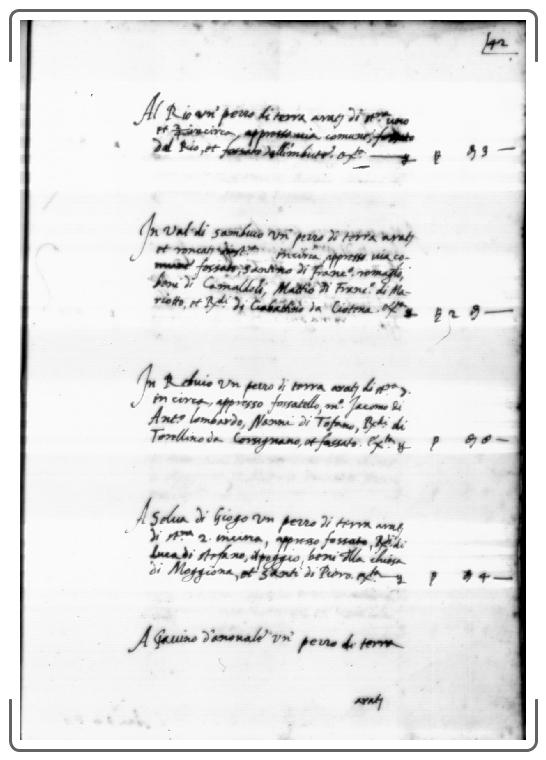 42
Al Rio un' pezzo di terra arati di st.ra uno
et in circa, appresso via comune, fossato
del Rio, et fossato dell'imbuto. ext.o
93
In Val di Sambuco un' pezzo di terra arati
et roncati incirca, appresso via co-
mune fossato, Santino di Franc.o romagli,
beni di Camaldoli, Mattio di Franc.o di Ma-
riotto, et Rdi. di Ciabattino da Ciotena. ext.o
2 9
In un pezzo di terra arati di st.ra
in circa, appresso fossatello, m.o Jacomo di
Ant.o lombardo, Nanni di Tofano, Rdi. di
Torellino da Corsignano, et fossato. ext.o
A Selva di Giogo un pezzo di terra arati
di st.ra 2. incirca, appresso fossato, Rdi. di
Luca di stefano, il poggio, beni alla chiesa
di Moggiona, et Santi di Piero. ext.o
94
A Gavino d'anonale un' pezzo di terra
arati